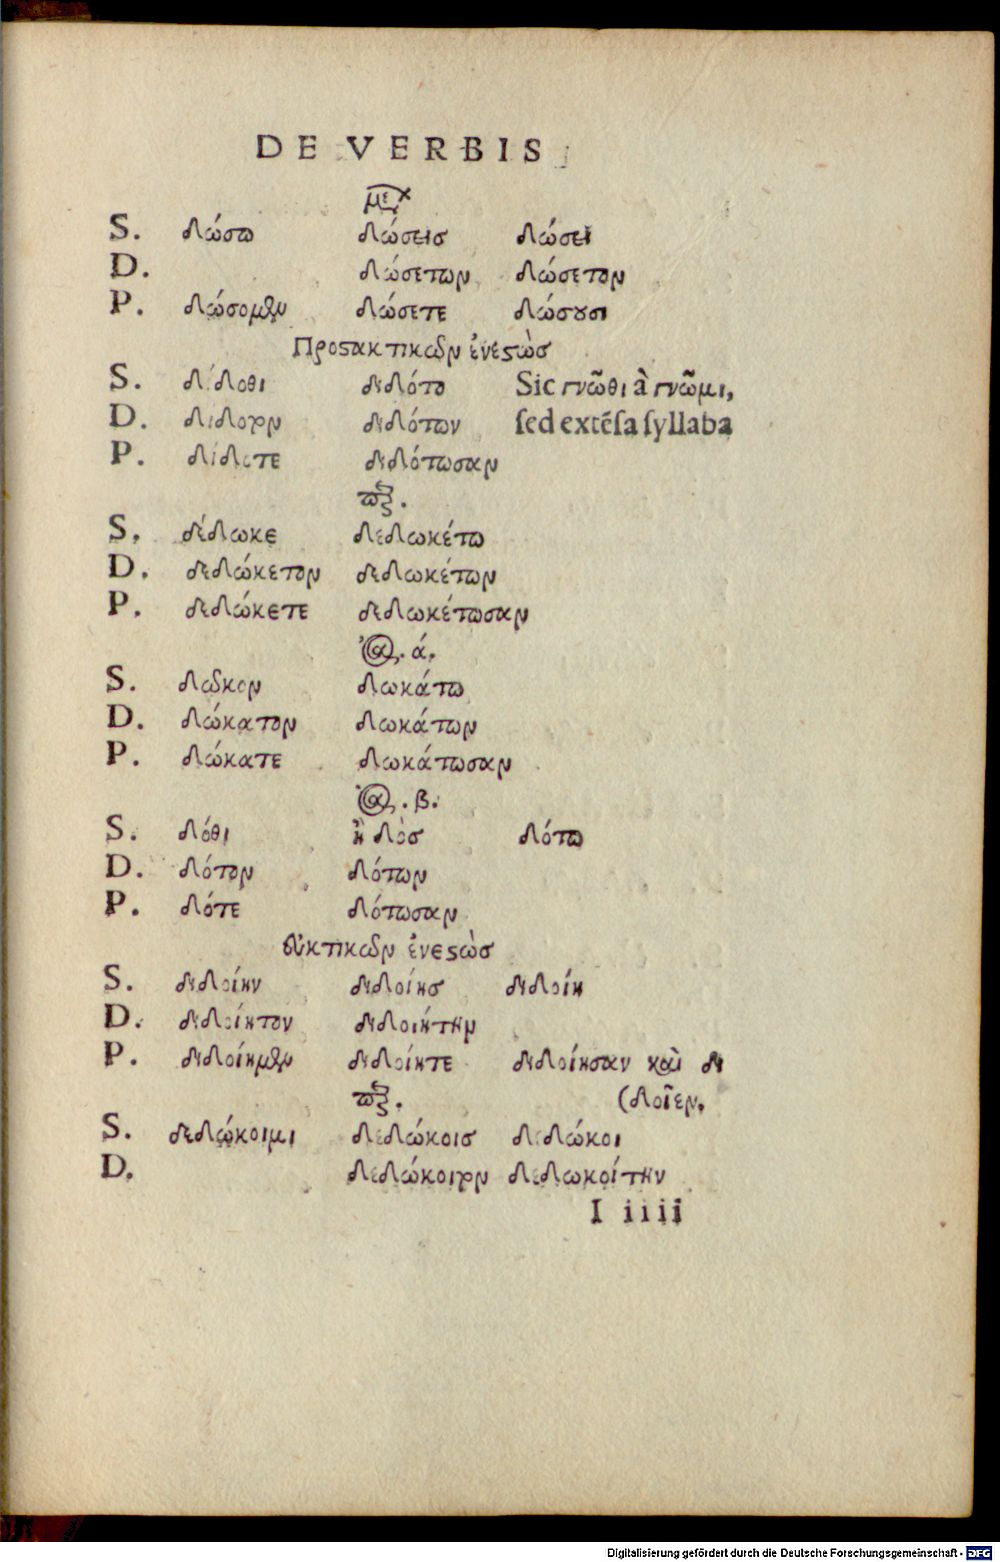 DE VERBIS
μελ
S. δώσω δώσεισ δώσει
D. δώσετων δώσετον
P. δώσομεν δώσετε δώσουσι
Προστακτικῶν ἐνεστὼσ
S. δίδοθι διδότο Sic γνῶθι à γνῶμι,
D. δίδοτον διδότων sed extēsa syllaba
P. δίδοτε διδότωσαν
πξ.
S. δέδωκε δεδωκέτω
D. δεδώκετον δεδωκέτων
P. δεδώκετε δεδωκέτωσαν
ἀ. ά.
S. δῶκον δωκάτω
D. δώκατον δωκάτων
P. δώκατε δωκάτωσαν
ἀ. β.
S. δόθι ἢ δὸσ δότω
D. δότον δότων
P. δότε δότωσαν
εὐκτικῶν ἐνεστὼσ
S. διδοίην διδοίησ διδοίη
D. διδοίητον διδοιήτην
P. διδοίημεν διδοίητε διδοίησαν καὶ δι
πξ. (δοῖεν.
S. δεδώκοιμι δεδώκοισ δεδώκοι
D. δεδώκοιτον δεδωκοίτην
I iiii
Digitalisierung gefördert durch die Deutsche Forschungsgemeinschaft - DFG